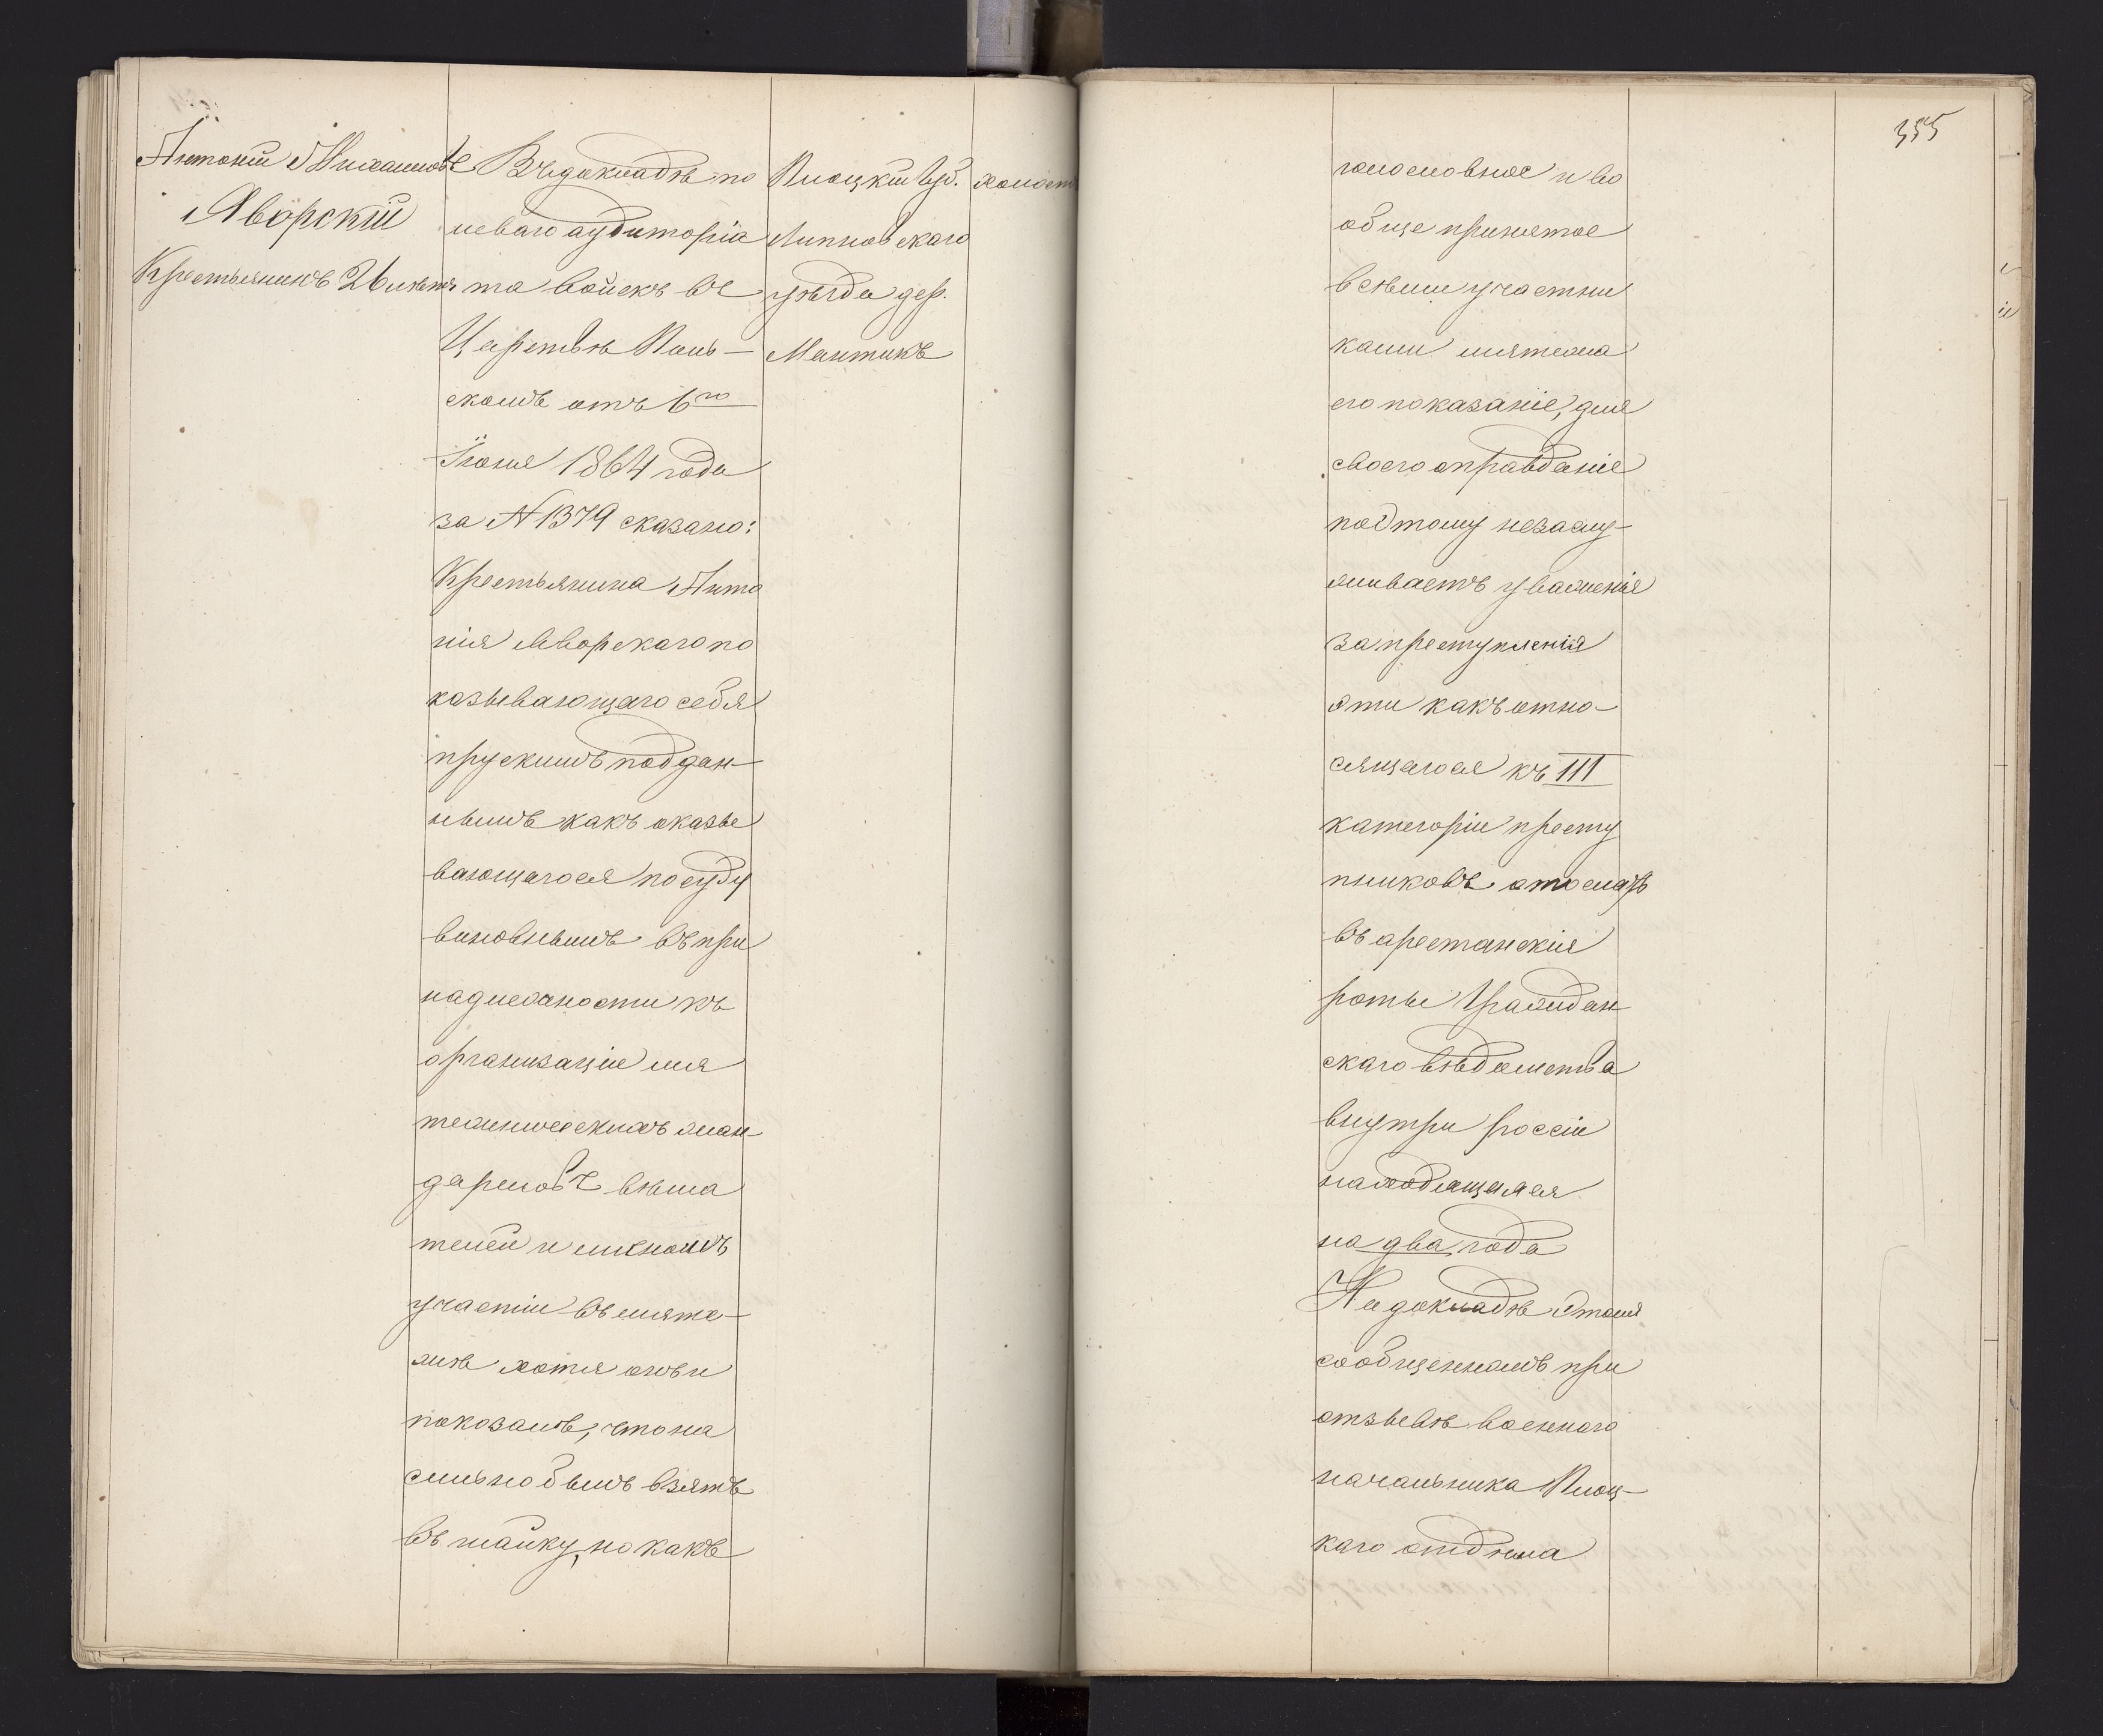 Антоній Михаиловъ
Яворскій
Крестьянинъ 26 лѣтъ
Въ докладѣ по
леваго аудиторіа
та войскъ въ
Царствѣ Поль-
скомъ отъ 6го
Іюня 1864 года
за N 1379 сказано:
Крестьянина Анто
нія Яворскаго по
казывающаго себя
прускимъ поддан-
нымъ какъ оказы
вающагося по суду
виновнымъ въ при
надлежности къ
организаціи мя
тежническихъ жан-
дармовъ вѣша
телей и личномъ
участіи въ мяте-
жѣ хотя онъ и
показалъ, что на
сильно былъ взятъ
въ шайку, но какъ
Плоцкій Губ.
Липновскаго
уѣзда дер.
Мантикъ
холост
355
голословное и во
обще принятое
всѣми участни
ками мятежа
его показаніе, для
своего оправданіе
подтому незаслу-
живаетъ уваженія
за преступленія
эти какъ отно-
сящагося къ III
категоріи престу
пниковъ отослать
въ арестанскія
роты Граждан-
скаго вѣдомства
внутри россіи
находящаяся
на два года
На докладѣ этомъ
сообщенномъ при
отзывѣ военнаго
начальника Плоц-
каго отдѣла